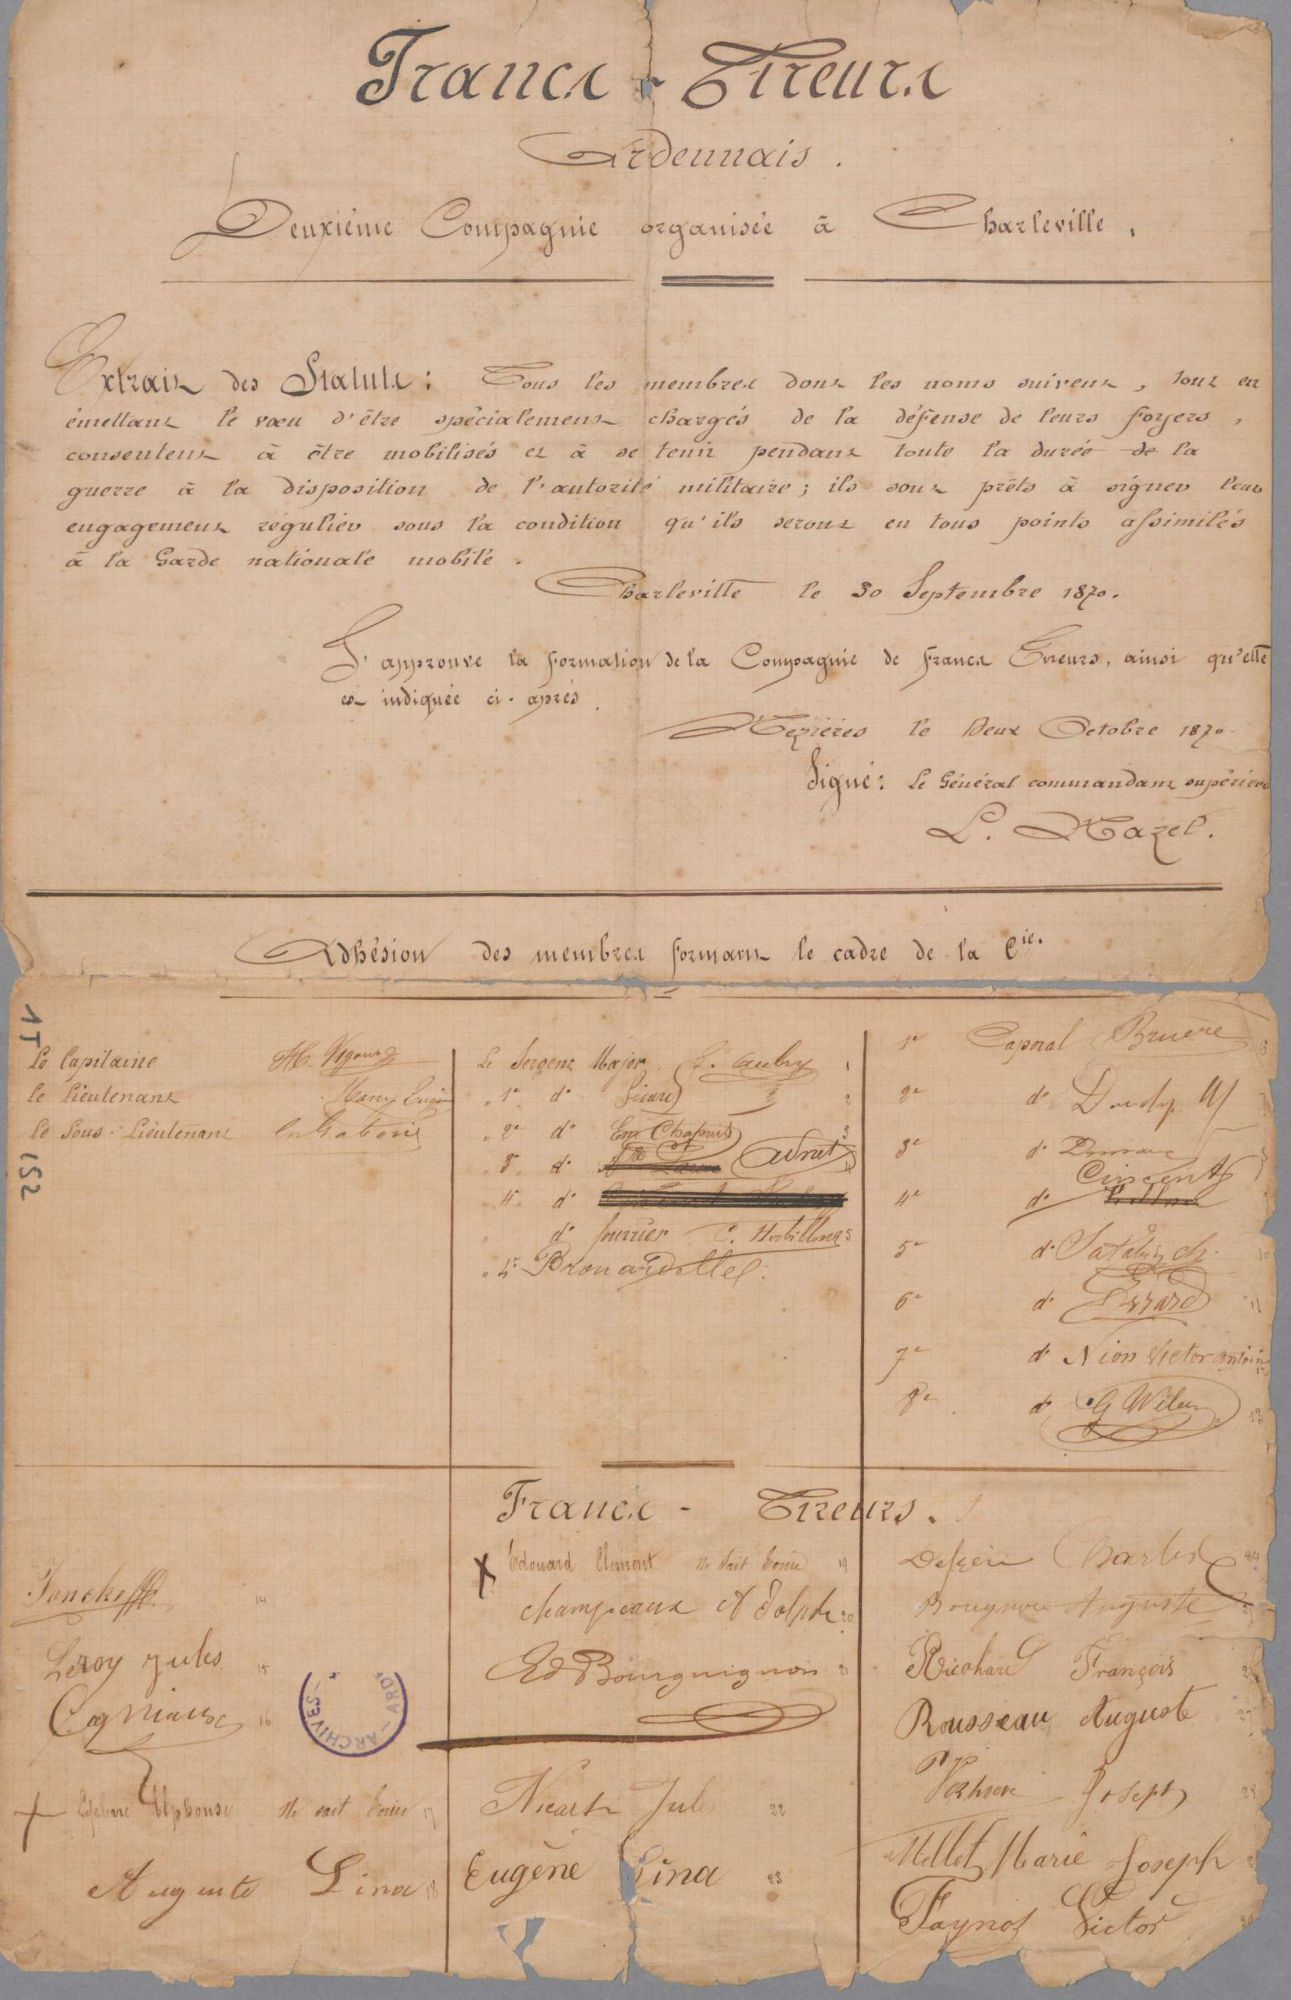 Francs-Tireurs
Ardennais.
Deuxième Compagnie organisée à Charleville.
Extrait des Statuts : Tous les membres dont les noms suivent, tout en
émettant le vœu d'être spécialement chargés de la défense de leurs foyers,
consentent à être mobilisés et à se tenir pendant toute la durée de la
guerre à la disposition de l'autorité militaire ; ils sont prêts à signer leur
engagement régulier sous la condition qu'ils seront en tous points assimilés
à la Garde nationale mobile.
Charleville le 30 Septembre 1870.
J'approuve la formation de la Compagnie de francs Tireurs, ainsi qu'elle
est indiquée ci-après.
Mézières le Deux Octobre 1870.
Signé : Le Général commandant supérieur
L. Mazel.
Adhésion des membres formant le cadre de la Cie.
1J
152
Le Capitaine
Le Lieutenant
Le Sous-Lieutenant
Le Sergent Major Aubry 1
1er do
2e do Chapuis 3
3e do Adnet
4e do
do fourrier 5
4e Brouardelle
1er Caporal Bruère 6
2e do
3e do
4e do Vincent
5e do
6e do Essard 11
7e do Nion Victor Antoine
8e do 13
Francs-Tireurs.
14
Leroy Jules 15
Cogniaux 16
Lefebvre Alphonse Ne sait écrire 17
Auguste Lina 18
Edouard Clément Ne sait écrire 19
Champeaux Adolphe 20
Ed Bourguignon 21
Nicart Jules 22
Eugène Lina 23
Charles 24
Auguste
Richard François
Rousseau Auguste 27
Joseph
Mellet Marie Joseph
Faynot Victor
ARCHIVES - ARD